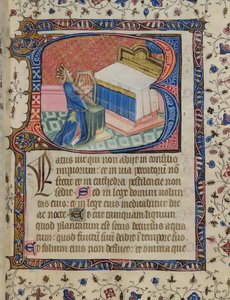 Beatus vir qui non abijt in consilio
impiorum: et in via peccatorum no
stetit et in cathedra pestilencie non
sedit. Sed in lege domini uolun
tas eius: et in lege eius meditabitur die
ac nocte. Et erit tamquam lignum
quod plantatum est secus decursus aqua
rum: quod fructum suum dabit in tempore suo
Et folium eius non defluet: et omnia que